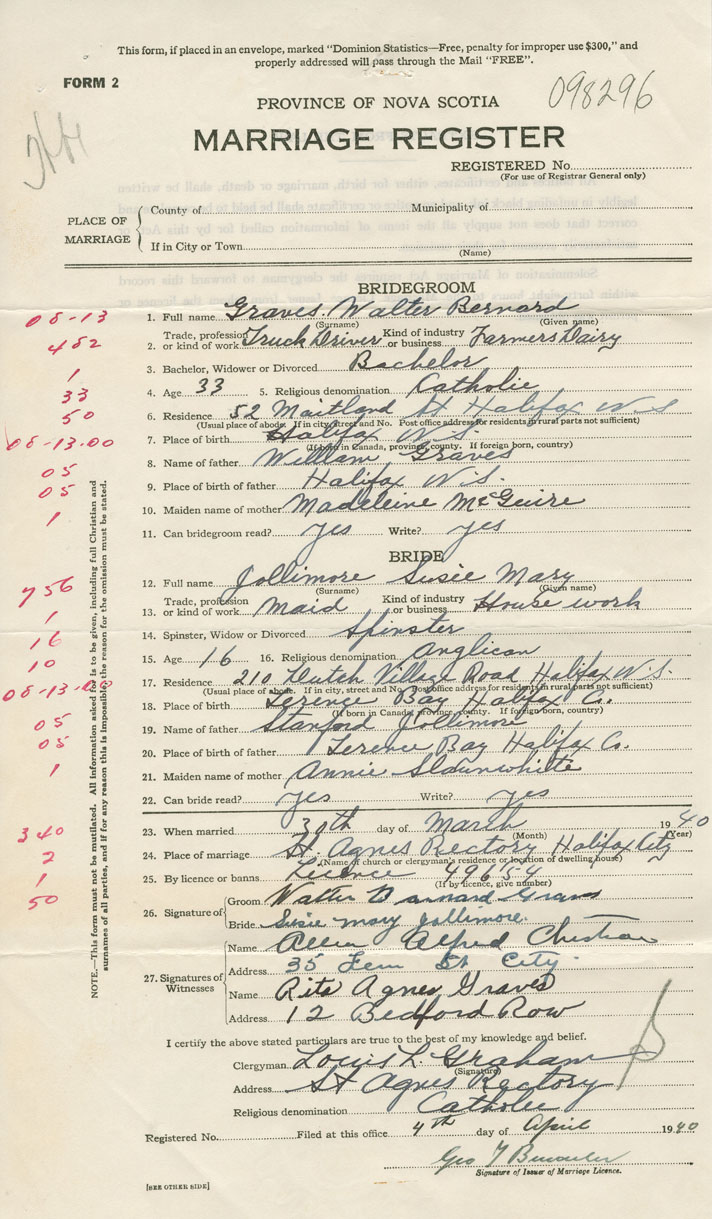 This form, if placed in an envelope, marked "Dominion Statistics—Free, penalty for improper use $300," and
properly addressed will pass through the Mail "FREE".
FORM 2
098296
PROVINCE OF NOVA SCOTIA
MARRIAGE REGISTER
REGISTERED No.
(For use of Registrar General only)
PLACE OF MARRIAGE
County of Municipality of
If in City or Town
(Name)
BRIDEGROOM
08-13 1. Full name Graves Walter Bernard
(Surname) (Given name)
482 2. Trade, profession or kind of work Truck Driver Kind of industry or business Farmers Dairy
1 3. Bachelor, Widower or Divorced Bachelor
33 4. Age 33 5. Religious denomination Catholic
50 6. Residence 52 Maitland St Halifax N.S
(Usual place of abode. If in city, street and No. Post office address for residents in rural parts not sufficient)
08-13.00 7. Place of birth Halifax N.S.
(If born in Canada, province, county. If foreign born, country)
05 8. Name of father William Graves
05 9. Place of birth of father Halifax N.S.
10. Maiden name of mother Madeleine McGuire
1 11. Can bridegroom read? yes Write? yes
BRIDE
756 12. Full name Jollimore Susie Mary
(Surname) (Given name)
1 13. Trade, profession or kind of work Maid Kind of industry or business House work
14. Spinster, Widow or Divorced Spinster
16 15. Age 16 16. Religious denomination Anglican
10 17. Residence 210 Dutch Village Road Halifax N.S.
(Usual place of abode. If in city, street and No. Post office address for residents in rural parts not sufficient)
08-13.00 18. Place of birth Terence Bay Halifax Co.
(If born in Canada, province, county. If foreign born, country)
05 19. Name of father Stanford Jollimore
05 20. Place of birth of father Terence Bay Halifax Co.
1 21. Maiden name of mother Annie Slaunwhite
22. Can bride read? yes Write? yes
340 23. When married 30th day of March 1940
(Month) (Year)
2 24. Place of marriage St. Agnes Rectory Halifax City
(Name of church or clergyman's residence or location of dwelling house)
1 25. By licence or banns Licence 49654
(If by licence, give number)
50 26. Signature of Groom Walter Barnard Graves
Bride Susie mary Jollimore.
27. Signatures of Witnesses
Name Alfred Christian
Address 35 St City.
Name Rita Agnes Graves
Address 12 Bedford Row
I certify the above stated particulars are true to the best of my knowledge and belief.
Clergyman Louis L. Graham
(Signature)
Address St Agnes Rectory
Religious denomination Catholic
Registered No. Filed at this office 4th day of April 1940
Geo
Signature of Issuer of Marriage Licence.
[SEE OTHER SIDE]
NOTE.—This form must not be mutilated. All information asked for is to be given, including full Christian and
surnames of all parties, and if for any reason this is impossible, the reason for the omission must be stated.